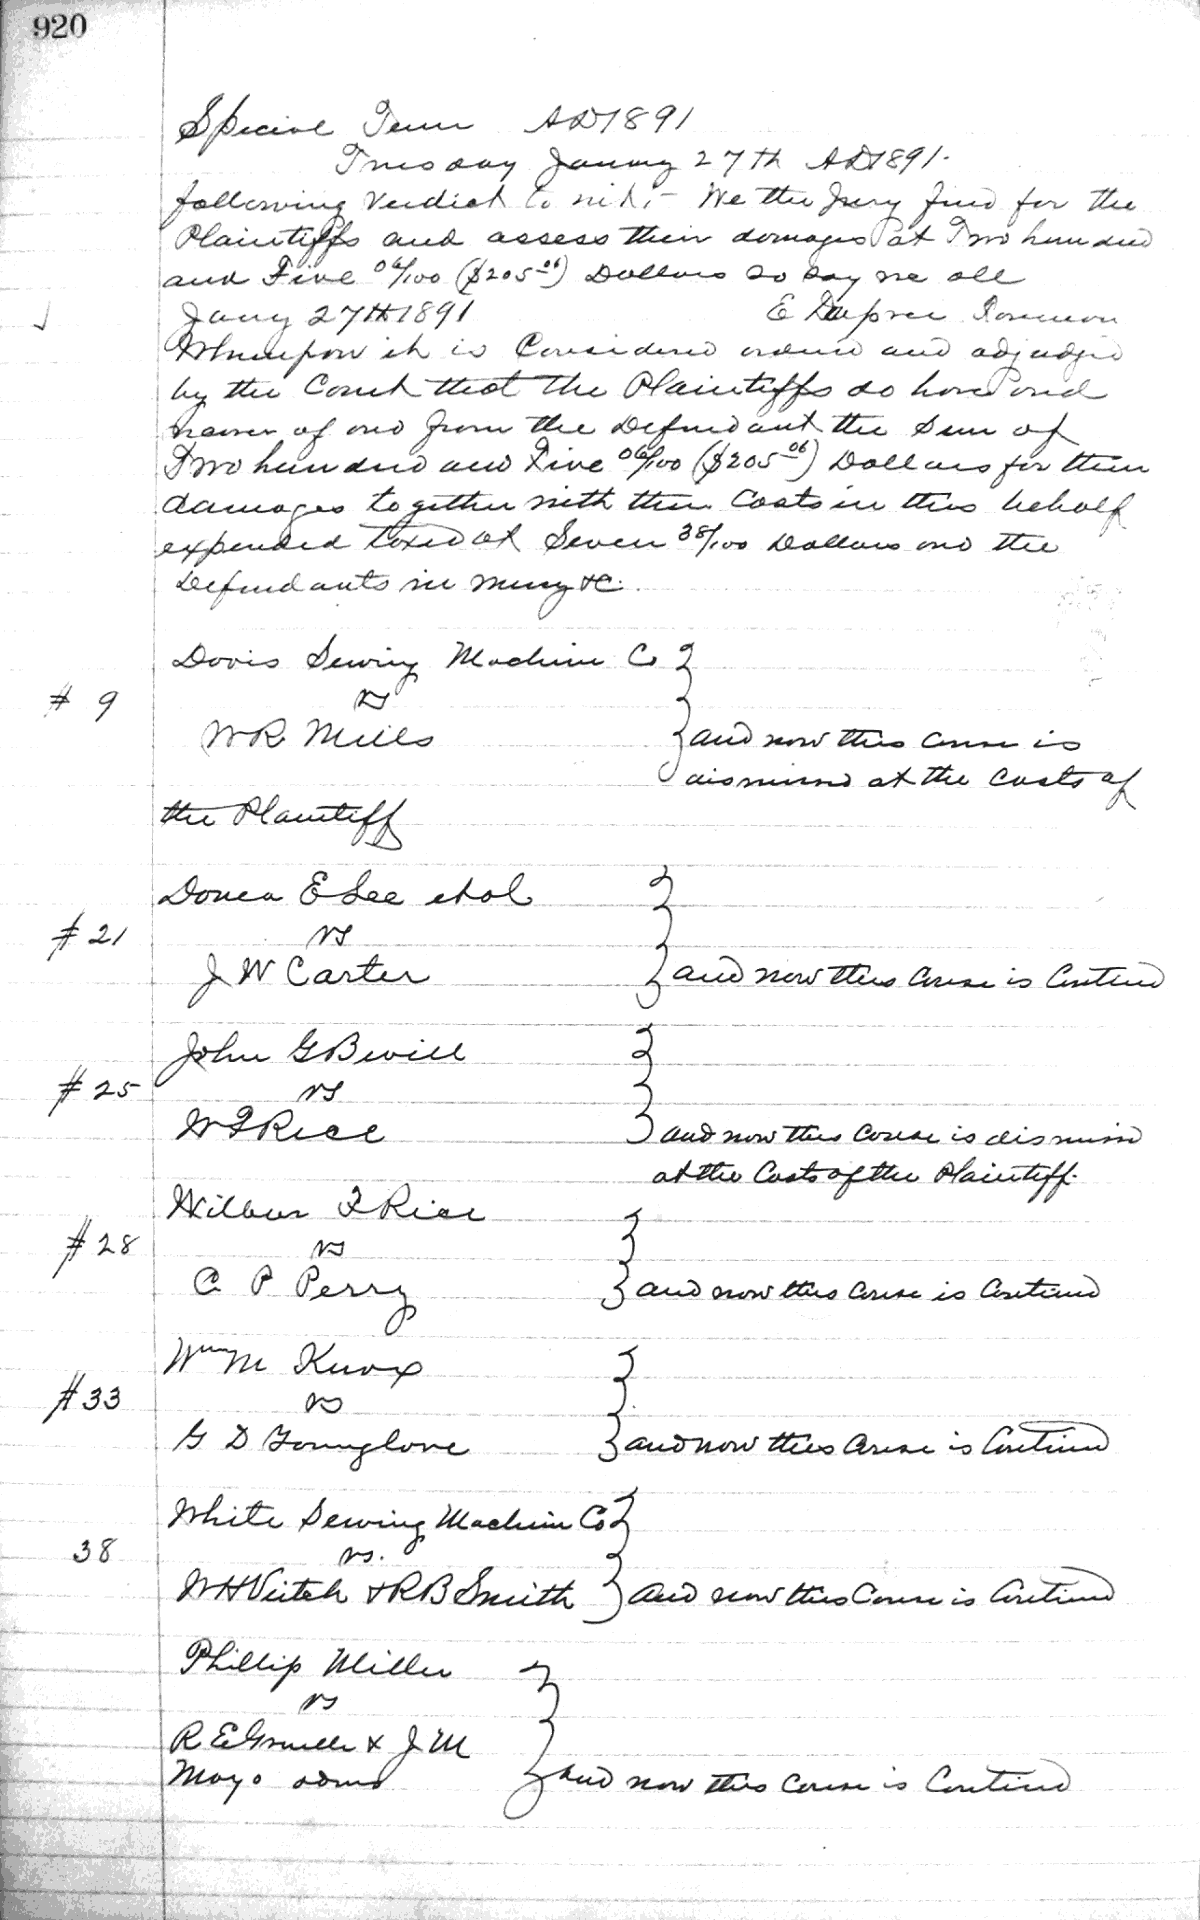 920
Special Term AD 1891
Tuesday January 27th AD 1891.
following verdict to wit:- We the Jury find for the
Plaintiffs and assess their damages at Two hundred
and Five 06/100 ($205 06) Dollars so say we all
Jany 27th 1891 E Dupree Foreman
Whereupon it is Considered ordered and adjudged
by the Court that the Plaintiffs do have and
recover of and from the Defendant the Sum of
Two hundred and Five 06/100 ($205 06) Dollars for their
damages together with their Costs in this behalf
expended taxed at Seven 38/100 Dollars and the
Defendants in mercy &c.
Davis Sewing Machine Co
# 9 vs
W R Mills and now this cause is
dismissed at the costs of
the Plaintiff
E Lee et al
# 21 vs
J W Carter and now this cause is Continued
John G Bevill
# 25 vs
W F Rice and now this cause is dismissed
at the Costs of the Plaintiff.
Wilbur F Rice
# 28 vs
C P Perry and now this cause is Continued
Wm M Knox
# 33 vs
G D Younglove and now this cause is Continued
White Sewing Machine Co
38 vs.
W H Veitch & R B Smith and now this Cause is Continued
Phillip Miller
vs
R E & J M
Mayo admr and now this cause is Continued